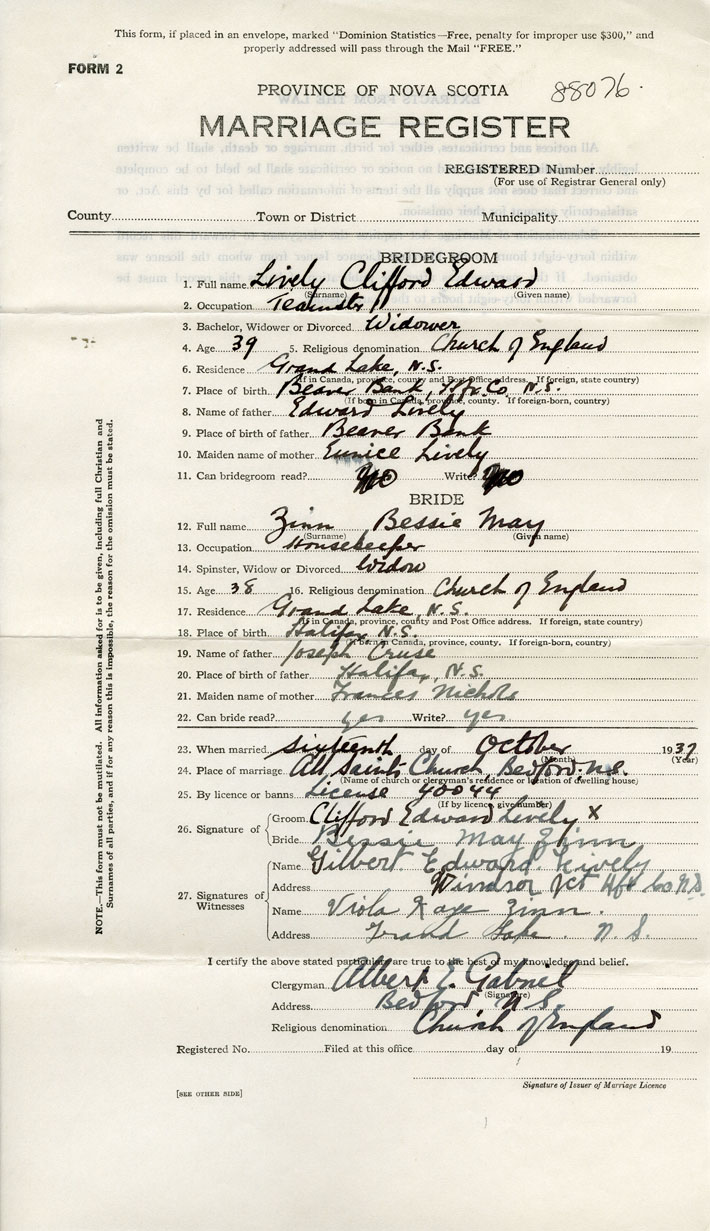 This form, if placed in an envelope, marked "Dominion Statistics—Free, penalty for improper use $300," and
properly addressed will pass through the Mail "FREE."
FORM 2
PROVINCE OF NOVA SCOTIA 88076
MARRIAGE REGISTER
REGISTERED Number
(For use of Registrar General only)
County Town or District Municipality
BRIDEGROOM
1. Full name Lively Clifford Edward
(Surname) (Given name)
2. Occupation Teamster
3. Bachelor, Widower or Divorced Widower
4. Age 39 5. Religious denomination Church of England
6. Residence Grand Lake, N.S.
(If in Canada, province, county and Post Office address. If foreign, state country)
7. Place of birth Beaver Bank, Hfx. Co. N.S.
(If born in Canada, province, county. If foreign-born, country)
8. Name of father Edward Lively
9. Place of birth of father Beaver Bank
10. Maiden name of mother Eunice Lively
11. Can bridegroom read? No Write? No
BRIDE
12. Full name Zinn Bessie May
(Surname) (Given name)
13. Occupation Housekeeper
14. Spinster, Widow or Divorced Widow
15. Age 38 16. Religious denomination Church of England
17. Residence Grand Lake, N.S.
(If in Canada, province, county and Post Office address. If foreign, state country)
18. Place of birth Halifax, N.S.
(If born in Canada, province, county. If foreign-born, country)
19. Name of father Joseph Cruse
20. Place of birth of father Halifax, N.S.
21. Maiden name of mother Frances Nichols
22. Can bride read? yes Write? yes
23. When married sixteenth day of October 1937
(Month) (Year)
24. Place of marriage All Saints Church, Bedford. N.S.
(Name of church or clergyman's residence or location of dwelling house)
25. By licence or banns License 40044
(If by licence, give number)
26. Signature of Groom Clifford Edward Lively X
Bride Bessie May Zinn
27. Signatures of Witnesses
Name Gilbert Edward Lively
Address Windsor Jct Hfx Co. N.S.
Name Viola Kaye Zinn.
Address Grand Lake. N.S.
I certify the above stated particulars are true to the best of my knowledge and belief.
Clergyman Albert E. Gabriel
(Signature)
Address Bedford N.S.
Religious denomination Church of England
Registered No. Filed at this office day of 19
Signature of Issuer of Marriage Licence
[SEE OTHER SIDE]
NOTE.—This form must not be mutilated. All information asked for is to be given, including full Christian and
Surnames of all parties, and if for any reason this is impossible, the reason for the omission must be stated.